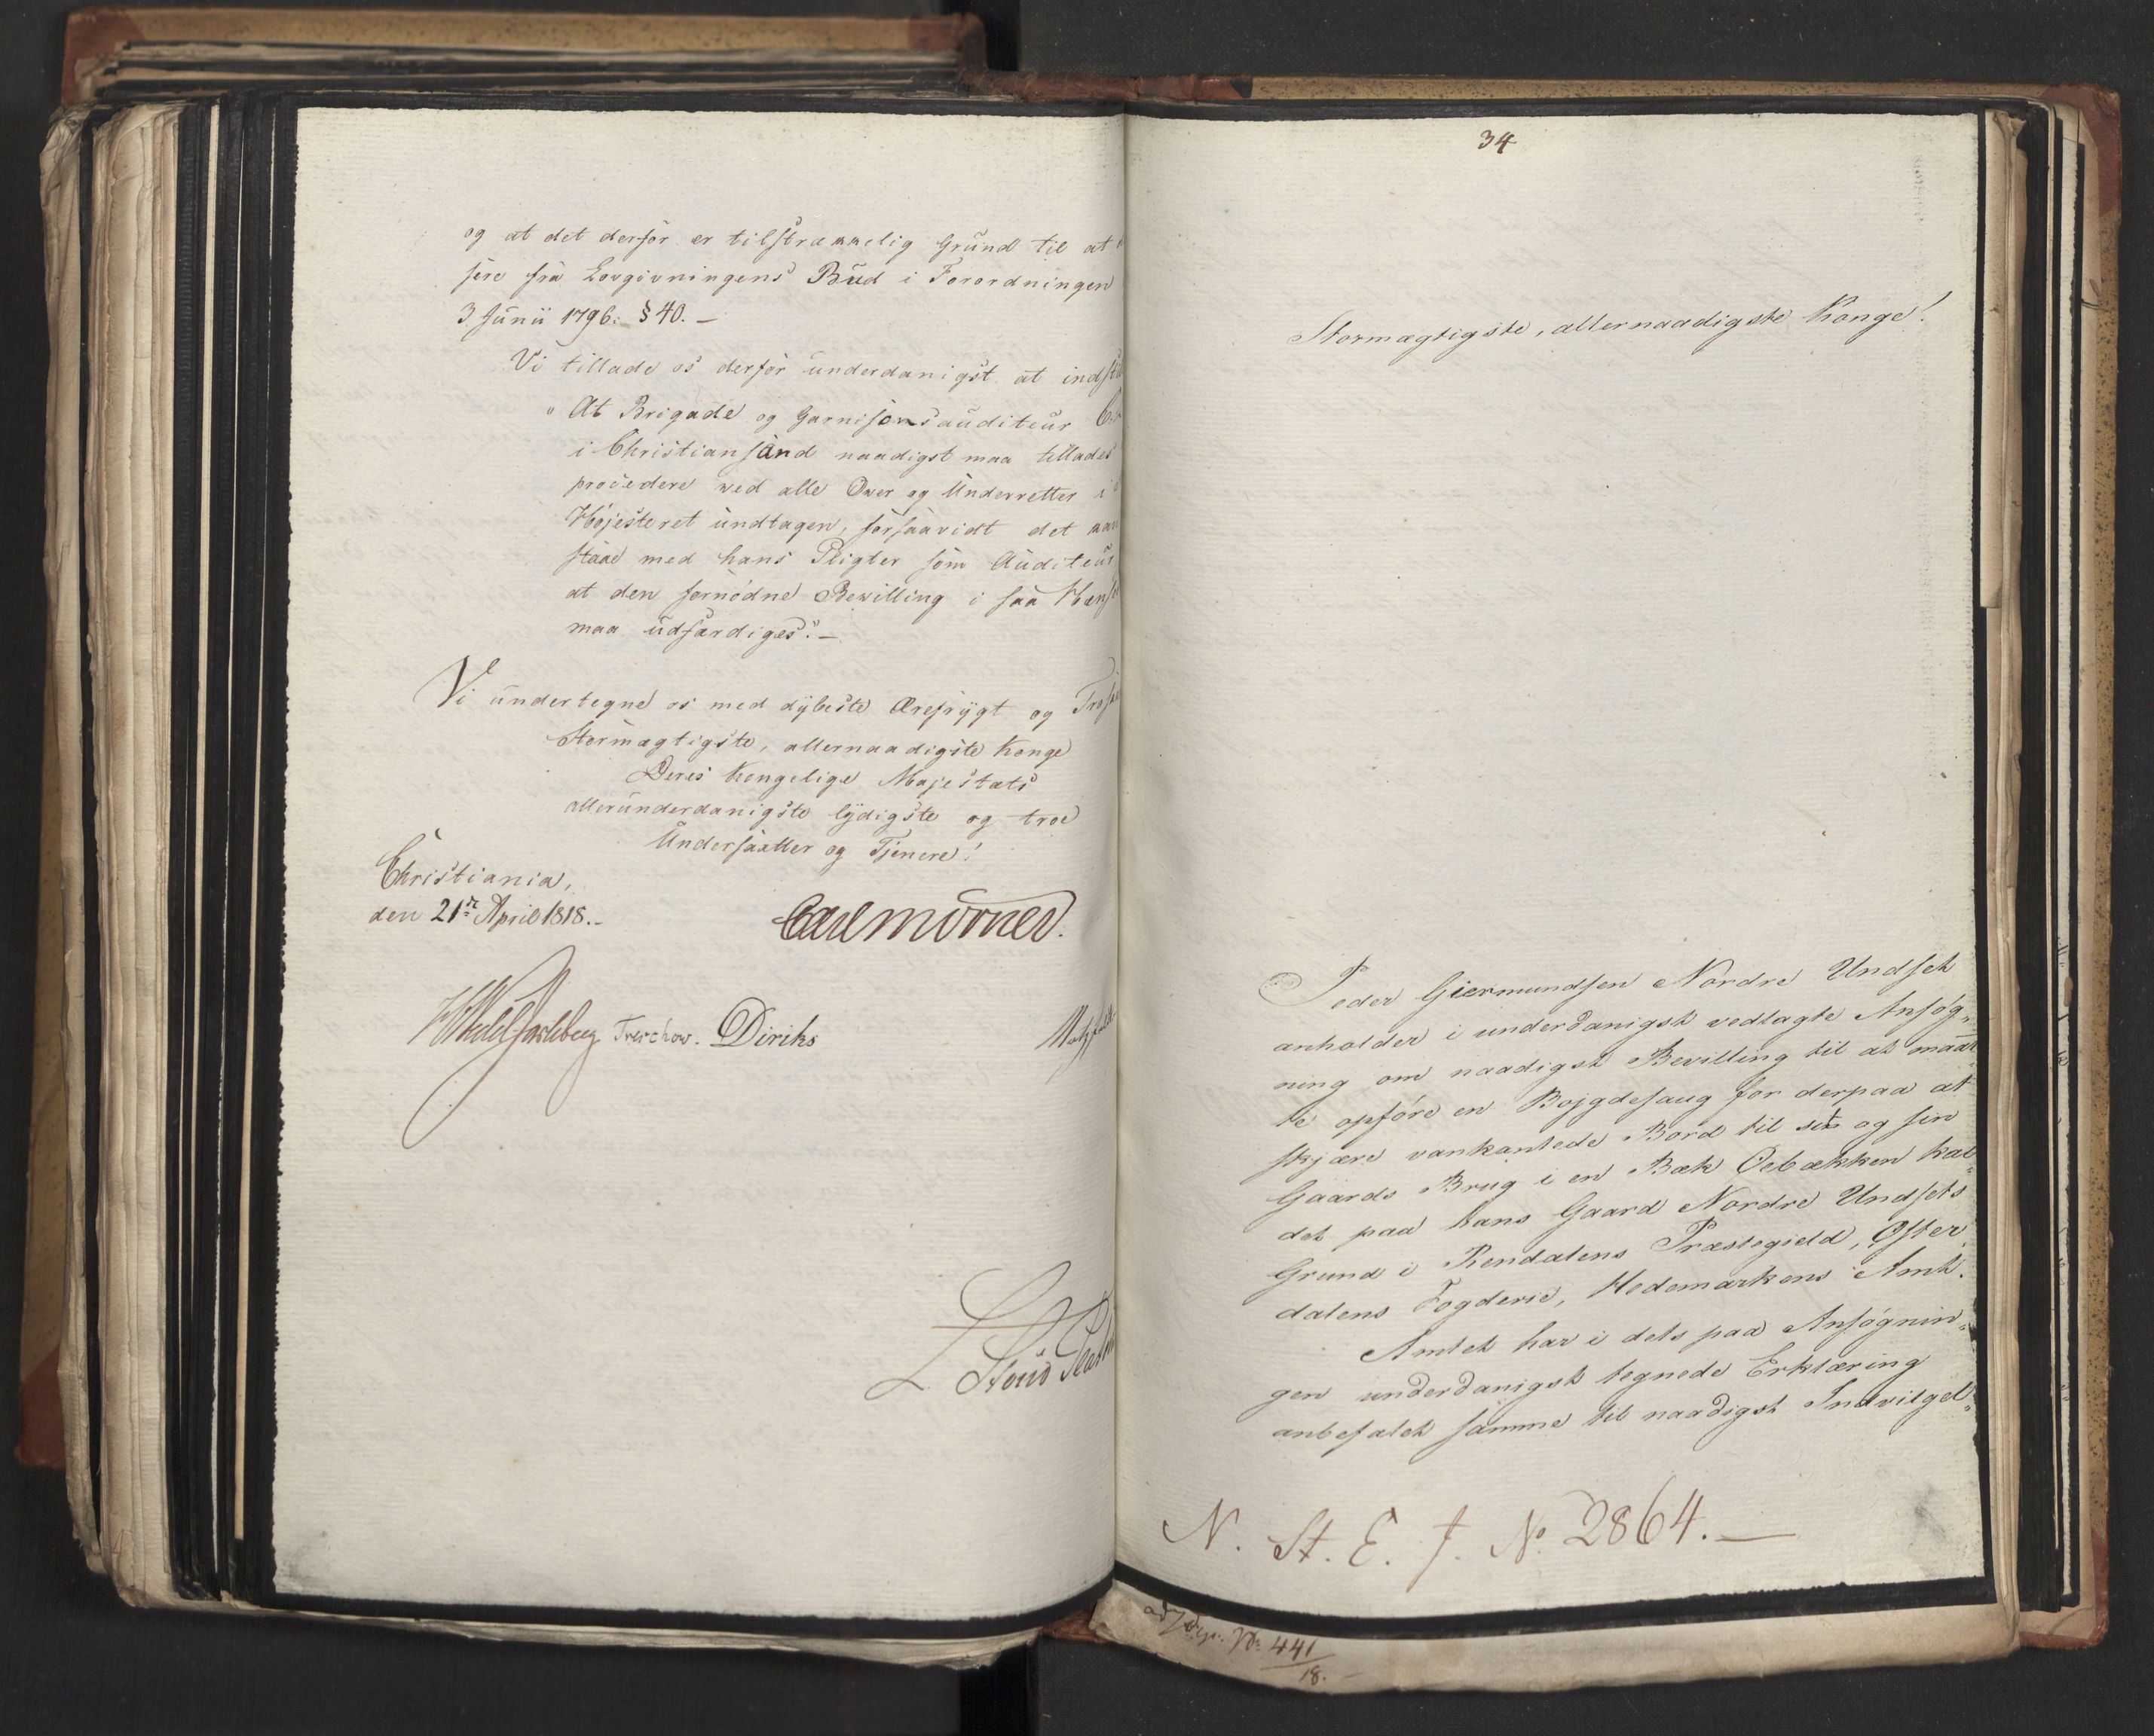 og at det derfor er tilstrækkelig Grund til at
fere fra Lovgivningens Bud i Forordningen
3 Junii 1796. § 40. –
Vi tillade os derfor underdanigst at indsti
"At Brigade og Garnisonsauditeur
i Christiansand naadigst maa tillades
procedere ved alle Over og Underretter i
Højesteret undtagen, forsaavidt det kan
staae med hans Pligter som Auditeur
at den fornødne Bevilling i saa Hens
maa udfærdiges." –
Vi undertegne os med dybeste Ærefrygt og Trosk
Stormægtigste, allernaadigste Konge
Deres Kongelige Majestæts
allerunderdanigste lydigste og troe
Undersaatter og Tjenere!
Christiania,
den 21de April 1818. –
Carl Mörner.
HWedel Jarlsberg Treschow. Diriks Motzfeldt
L Stoud Plat
34
Stormægtigste, allernaadigste Konge!
Peder Giermundsen Nordre Undset
anholder i underdanigst vedlagte Ansøg„
ning om naadigst Bevilling til at maat
te opføre en Bøjgdesaug for derpaa at
skjære vankantede Bord til sit og sin
Gaards Brug i en Bæk Oebækken kal„
det paa hans Gaard Nordre Undsets
Grund i Rendalens Præstegield, Øster„
dalens Fogderie, Hedemarkens Amt.
Amtet har i dets paa Ansøgnin„
gen underdanigst tegnede Erklæring
anbefalet samme til naadigst Indvilgel„
N. St. E. J. No 2864. –
Jd No 441
18. –